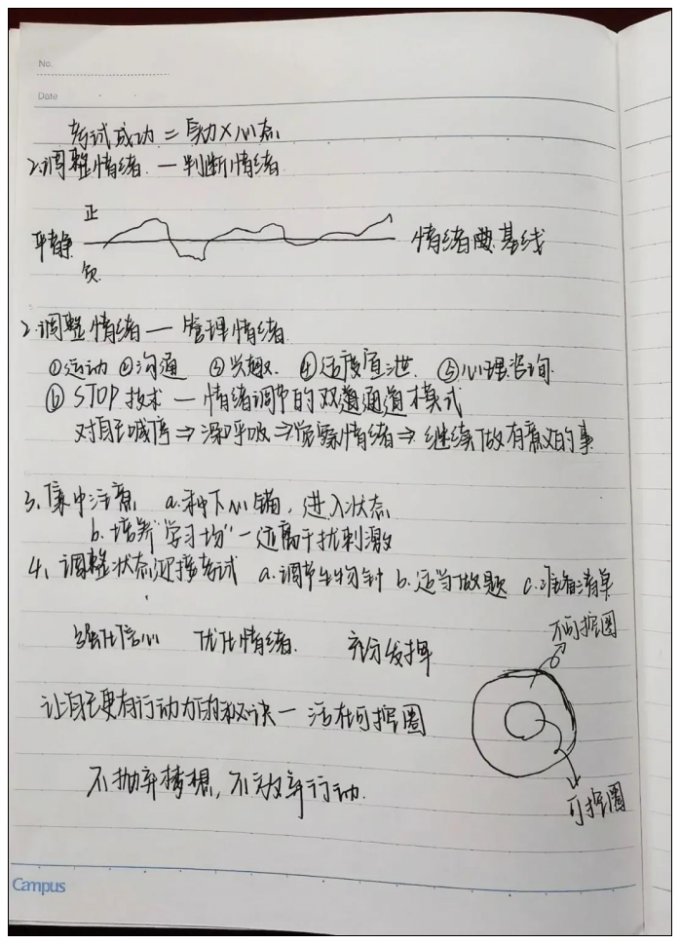 No.
Date
考试成功 = 实力×心态
2.调整情绪 — 判断情绪
正
平静
负
情绪 基线
2.调整情绪 — 管理情绪
①运动 ②沟通 ③兴趣 ④适度宣泄 ⑤心理咨询
⑥ STOP 技术 — 情绪调节的双通道模式
对自己喊停⇒深呼吸⇒觉察情绪⇒继续做有意义的事
3.集中注意 a.种下心锚,进入状态
b.培养“学习场”—远离干扰刺激
4、调整状态迎接考试 a.调节生物钟 b.适当做题 c.准备清单
强化信心 优化情绪 充分发挥
不可控圈
让自己更有行动力的秘诀 — 活在可控圈
不抛弃梦想,不放弃行动.
可控圈
Campus